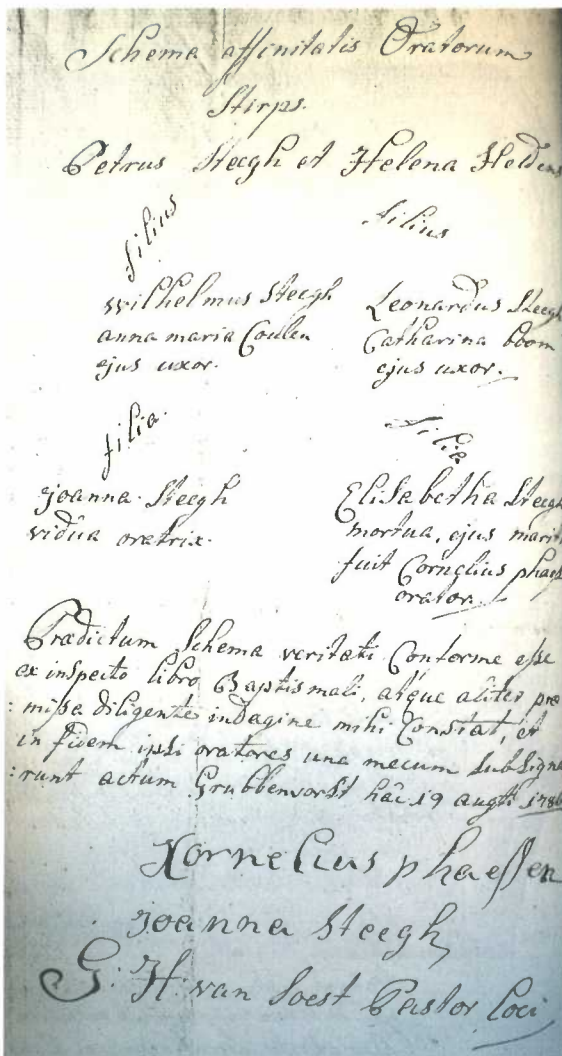 Schema affinitatis Oratorum
Stirps.
Petrus Steegh et Helena Heldens
filius
filius
Wilhelmus Steegh
anna maria Coulen
ejus uxor.
Leonardus Steegh
Catharina boom
ejus uxor.
filia.
filia
joanna Steegh
vidua oratrix.
Elisabetha Steegh
mortua, ejus marit
fuit Cornelius phaes
orator.
Prædictum Schema veritati Conforme esse
ex inspecto libro Baptismali, atque aliter præ
: missa diligente indagine mihi Constat, et
in fidem ipsi oratores una mecum subsigna
: runt actum Grubbenvorst hâc 19 augti 1786
Kornelius phaessen
Joanna Steegh
G: H: van Soest Pastor Loci